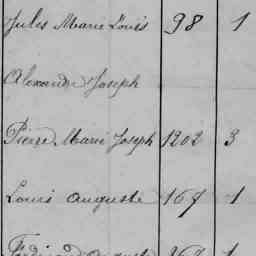 Jules Marie Louis 98 1
Alexandre Joseph
Pierre Marie Joseph 1202 3
Louis Auguste 167 1
Ferdinand Auguste